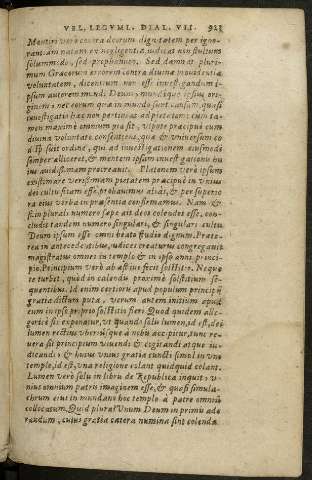 VEL, LEGVML. DIAL. VII. 923
Mentiri verò contra deorum dignitatem per igno-
rantiam natam ex negligentia, iudicat non stultum
solummodo, sed prophanum. Sed damnat pluri-
mum Græcorum errorem contra diuinæ prouidentiæ
voluntatem, dicentium non esse inuestigandum i-
psum autorem mundi Deum: mundique ipsius ori-
ginem: nec eorum quæ in mundo sunt causam, quasi
inuestigatio hæc non pertineat ad pietatem: cum ta-
men maximè omnium pia sit, vtpote præcipuè cum
diuina voluntate consentiens, quæ & vniuersum co
didit suit ordine, qui ad inuestigationem eiusmodi
semper alliceret, & mentem ipsam inuestigationis hu
ius auidissimam procreauit. Platonem verò ipsum
existimare verissimam pietatem præcipuè in vnius
dei cultu sitam esse, probauimus aliàs, & per superio
ra eius verba in præsentia confirmamus. Nam &
si in plurali numero sæpe ait deos colendos esse, con-
cludit tandem numero singulari, & singulari cultu
Deum ipsum esse omni beato studio dignum. Præte-
rea in antecedentibus, iudices creaturus congregauit
magistratus omnes in templo & in ipso anni princi-
pio. Principium verò ab æstiuo fecit solstitio. Neque
te turbet, quòd in calendis proximè solstitium se-
quentibus. Id enim certioris apud populum principij
gratia dictum puta, verum autem initium apud
eum in ipso proprio solstitio fieri. Quod quidem alle-
goricè sic exponatur, vt quando soli lumen, id est, dei
lumen rectius vberiusque à nobis accipitur, tunc re
uera sit principium viuendi & cogitandi atque iu-
dicandi: & huius vnius gratia cuncti simul in vno
templo, id est, vna religione colant quidquid colendũ.
Lumen verò solis in libris de Republica inquit: v-
nius omnium patris imaginem esse, & quasi simula-
chrum eius in mundano hoc templo à patre omniũ
collocatum. Quid plura? Vnum Deum in primis ado
randum, cuius gratia cætera numina sint colenda